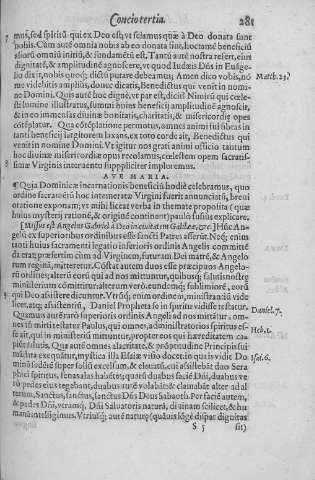 Concio tertia. 281
mus, sed spiritū qui ex Deo est, vt sciamus quæ à Deo donata sunt
nobis. Cùm autē omnia nobis ab eo donata sint, hoc tamē beneficiū
aliorū omniū initiū, & fundamētū est. Tantū autē nostra refert, eius
dignitatē, & amplitudinē agnoscere, vt quod Iudæis Dñs in Euāge-
lio dixit, nobis quoq; dictū putare debeamus; Amen dico vobis, nō Matth. 23.
me videbitis ampliùs, donec dicatis, Benedictus qui venit in nomi-
ne Domini. Quis autē hoc dignè, vt par est, dicit? Nimirū qui cœle-
sti lumine illustratus, summi huius beneficij amplitudinē agnoscit,
& in eo immensas diuinæ bonitatis, charitatis, & misericordię opes
cōtēplatur. Qua cōtēplatione permotus, omnes animi sui fibras in
tanti beneficij largitorem laxans, ex toto corde ait, Benedictus qui
venit in nomine Domini. Vt igitur nos grati animi officio tantum
hoc diuinæ misericordiæ opus recolamus, cœlestem opem sacratis-
simæ Virginis interuentu suppliciter imploremus.
AVE MARIA.
¶ Quia Dominicæ incarnationis beneficiū hodiè celebramus, quo
ordine sacramētū hoc intemeratæ Virgini fuerit annunciatū, breui
oratione exponam; vt mihi liceat verba in themate proposita (quæ
huius mysterij rationē, & originē continent) paulò fusiùs explicare.
[Missus est Angelus Gabriel à Deo in ciuitatem Galilææ, &c.] Hūc An-
gelū ex superioribus ordinibus esse sancti Patres asserūt. Neq; enim
tanti huius sacramenti legatio inferioris ordinis Angelis committē
da erat; præsertim cùm ad Virginem, futuram Dei matrē, & Angelo-
rum reginā, mitteretur. Cōstat autem duos esse præcipuos Angelo-
rū ordines; alterū eorū qui ad nos mittuntur, quibusq; salutis nostrę
ministerium cōmittitur. alterum verò, eundemq; sublimiorē, eorū
qui Deo assistere dicuntur. Vtrūq; enim ordinem, ministrantiū vide
licet, atq; assistentiū, Daniel Propheta se in spiritu vidisse testatur. Daniel. 7.
Quamuis autē rarò superioris ordinis Angeli ad nos mittātur, om-
nes tñ mitti testatur Paulus, qui omnes, administratorios spiritus es-
se ait, qui in ministeriū mittuntur, propter eos qui hæreditatem ca- Heb. 1.
piūt salutis. Qua autē omnes alacritate, & prōptitudine Principis sui
mādata exequātur, mystica illa Esaiæ visio docet, in qua is vidit Do Isai. 6.
minū sedētē super soliū excelsum, & eleuatū, cui assistebāt duo Sera
phici spiritus, senas alas habētes; quarū duabus faciē Dñi, duabus ve
rò pedes eius tegebant, duabus autē volabāt: & clamabāt alter ad al
terum, Sanctus, sanctus, sanctus Dñs Deus Sabaoth. Per faciē autem,
& pedes Dñi, vtramq; Dñi Saluatoris naturā, diuinam scilicet, & hu
manā intelligimus. Vtriusq; autē naturę (quāuis lōgè dispar dignitas
S 5 sit)